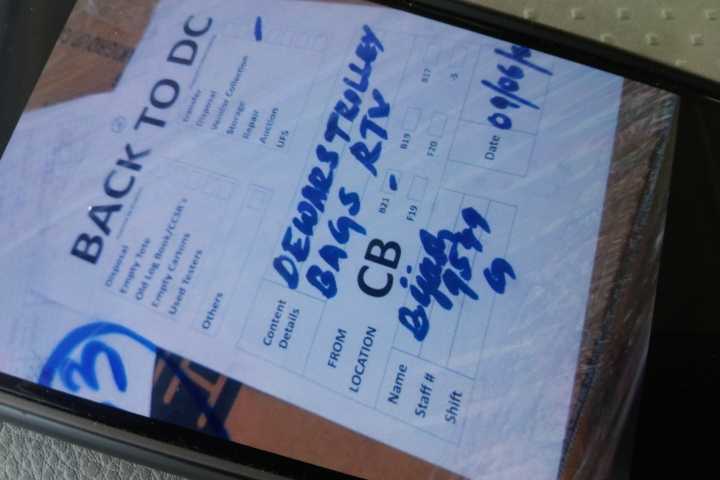 BACK TO DC
Transfer
Disposal
Vendor Collection
Storage
Repair
Auction
UFS
Disposal
Empty Tote
Old Log Book/CCSR's
Empty Cartons
Used Testers
Others
Content Details
DEWARS TROLLEY
BAGS RTV
FROM
LOCATION
CB
B21 - B19 B17
F19 F20
Name
Staff #
Shift
G
Date 09/06/
3